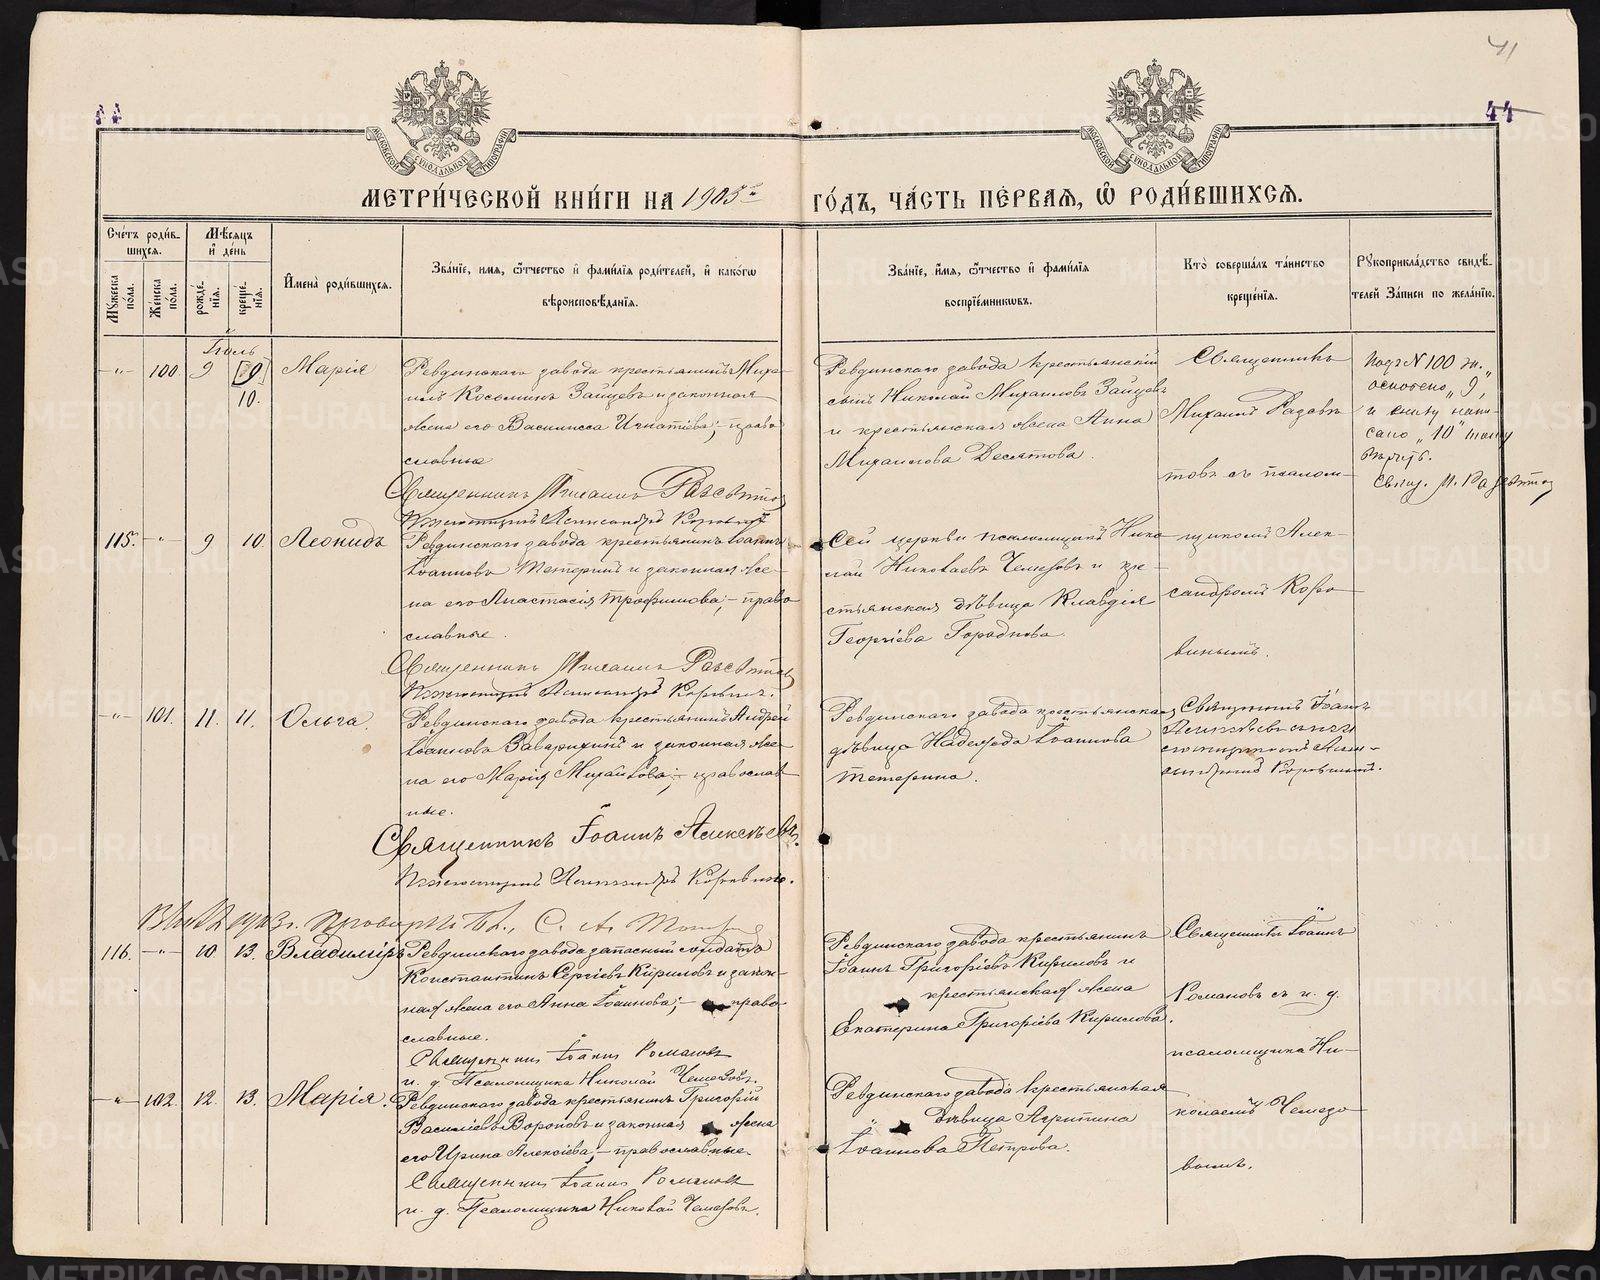 41
44
44
МОСКОВСКОЙ СѴНОДАЛЬНОЙ ТИПОГРАФІИ
МОСКОВСКОЙ СѴНОДАЛЬНОЙ ТИПОГРАФІИ
МЕТРИ́ЧЕСКОЙ КНИ́ГИ НА 1905й ГО́ДЪ, ЧА́СТЬ ПЕ́РВАЯ, Ѽ РОДИ́ВШИХСЯ.
Сче́тъ роди́вшихся.
Мꙋ́жеска по́ла.
Же́нска по́ла.
Мѣ́сяцъ и҆ де́нь
рожде́нїя.
креще́нїя.
И҆мена̀ роди́вшихся.
Зва́нїе, и҆мя, ѻ҆́тчество и҆ фамилїя роди́телей, и҆ како́гѡ вѣроисповѣ́данїя.
Зва́нїе, и҆́мя, ѻ҆́тчество и҆ фами́лїя воспрїе́мникѡвъ.
Кто̀ соверша́лъ та́инство креще́нїя.
Рꙋкоприкла́дство свидѣ́телей за́писи по жела́нїю.
Іюль
-"- 100. 9 [9] 10. Марія
Ревдинскаго завода крестьянинъ Миха-
илъ Косьминъ Зайцевъ и законная
жена его Василисса Игнатіева; - право
славные
Священникъ Михаилъ Разсвѣтовъ
Псаломщикъ Александръ Коровинъ
Ревдинскаго завода крестьянскій
сынъ Николай Михаиловъ Зайцевъ
и крестьянская жена Анна
Михаилова Десятова.
Священникъ
Михаилъ Разсвѣ
товъ съ псалом-
щикомъ Алек-
сандромъ Коро
винымъ.
Подъ №100 ж.
"9"
и снизу напи-
сано "10" тому
вѣрить.
Свящ. М. Разсвѣтовъ
115. -"- 9 10. Леонидъ
Ревдинскаго завода крестьянинъ Іоаннъ
Іоанновъ Тетеринъ и законная же-
на его Анастасія Трофимова; - право
славные.
Священникъ Михаилъ Разсвѣтовъ
Псаломщикъ Александръ Коровинъ.
Сей церкви псаломщикъ Нико
лай Николаевъ Чемезовъ и кре-
стьянская дѣвица Клавдія
Георгіева
-"- 101. 11. 11. Ольга.
Ревдинскаго завода крестьянинъ Андрей
Іоанновъ Заварихинъ и законная же-
на его Марія Михайлова; - православ
ные.
Священникъ Іоаннъ Алексѣевъ.
Псаломщикъ Александръ Коровинъ.
Ревдинскаго завода крестьянская
дѣвица Надежда Іоаннова
Тетерина.
Священникъ Іоаннъ
Алексѣевъ съ пса
ломщикомъ Алек-
сандромъ Коровинымъ.
116. -"- 10. 13. Владиміръ
Ревдинскаго завода запасный солдатъ
Константинъ Сергіевъ Кириловъ и закон-
ная жена его Анна Іоаннова; - право
славные.
Священникъ Іоаннъ Романовъ
и. д. Псаломщика Николай Чемезовъ.
Ревдинскаго завода крестьянинъ
Іоаннъ Григоріевъ Кириловъ и
крестьянская жена
Екатерина Григоріева Кирилова.
Священникъ Іоаннъ
Романовъ съ и. д.
псаломщика Ни-
колаемъ Чемезо
вымъ.
-"- 102. 12. 13. Марія.
Ревдинскаго завода крестьянинъ Григорій
Василіевъ Вороновъ и законная жена
его Ирина Алексіева; - православные.
Священникъ Іоаннъ Романовъ
и. д. Псаломщика Николай Чемезовъ.
Ревдинскаго завода крестьянская
дѣвица Агрипина
Іоаннова Петрова.
METRIKI.GASO-URAL.RU